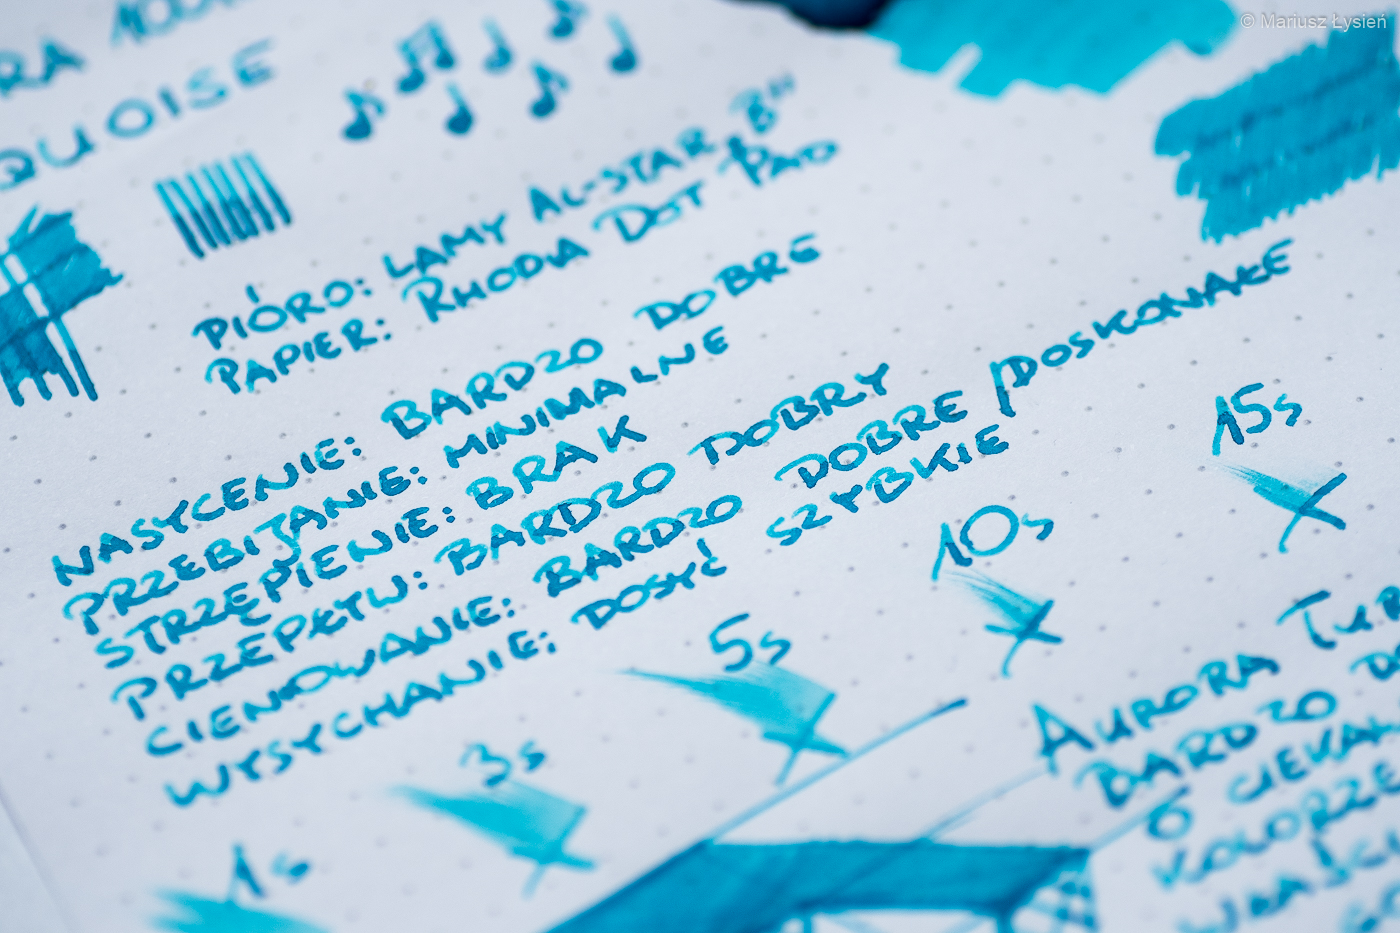 © Mariusz Łysień
QUOISE
PIÓRO: LAMY AL-STAR „B”
PAPIER: RHODIA DOT PAD
NASYCENIE: BARDZO DOBRE
PRZEBIJANIE: MINIMALNE
STRZĘPIENIE: BRAK
PRZEPŁYW: BARDZO DOBRY
CIENIOWANIE: BARDZO DOBRE / DOSKONAŁE
WYSYCHANIE: DOSYĆ SZYBKIE
1s
3s
5s
10s
15s
AURORA
BARDZO
O
KOLORZE